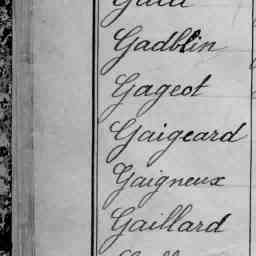 Gadblin
Gageot
Gaigeard
Gaigneux
Gaillard